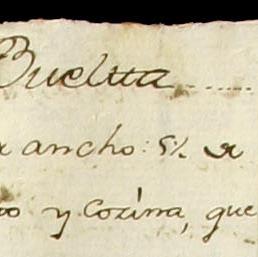 Buelua
ancho: 5/.
y Cozina, que